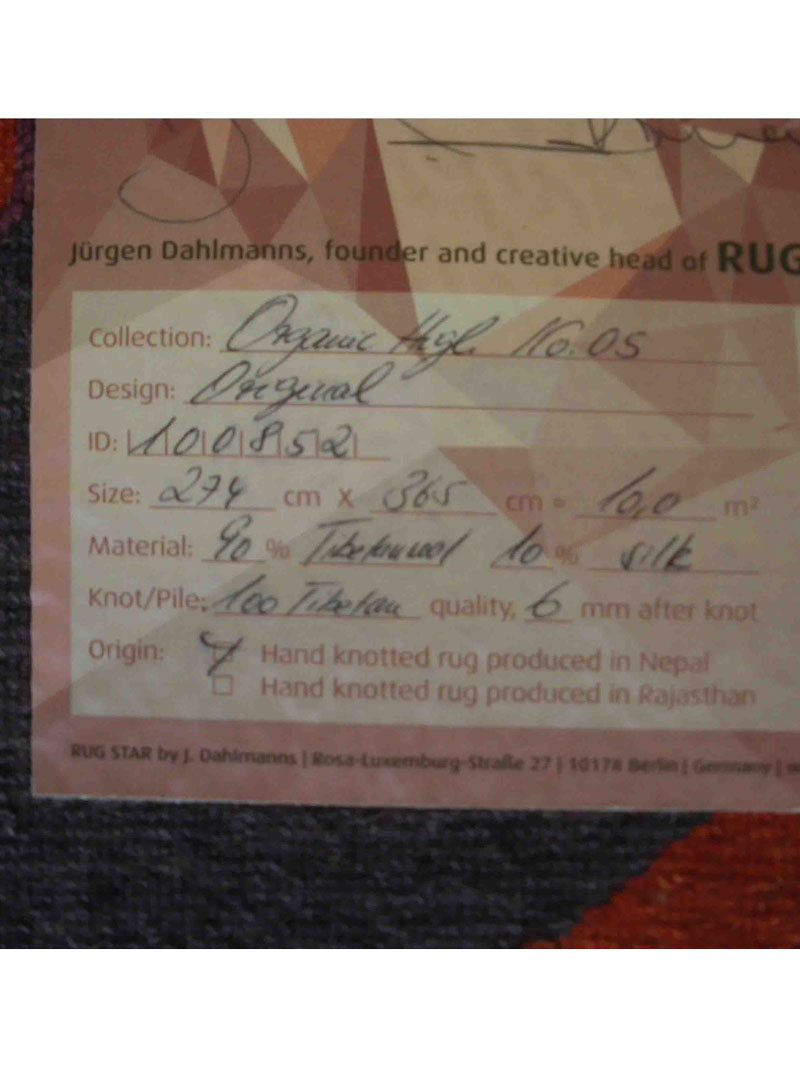 Jürgen Dahlmanns, founder and creative head of RUG
Collection: Organic High No. 05
Design: Original
ID: 100852
Size: 274 cm x 365 cm = 10,0 m²
Material: 90 % Tibetanwool 10 % silk
Knot/Pile: 100 Tibetan quality, 6 mm after knot
Origin: Hand knotted rug produced in Nepal
Hand knotted rug produced in Rajasthan
RUG STAR by J. Dahlmanns | Rosa-Luxemburg-Straße 27 | 10178 Berlin | Germany |